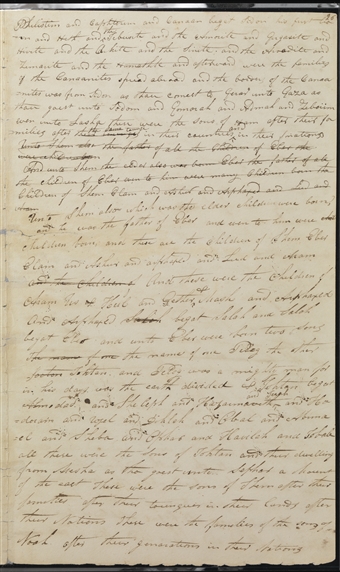 Philistim and Caphtorim and Canaan begat Sidon his first
born and Heth and the Jebusite and the Amorite and Girgasite and
Hivite and the Arkite and the Sinite and the Arvadite and
Zemarite and the Hamathite and afterward were the families
of the Canaanites spread abroad and the border of the Canaa
nites was from Sidon as thou comest to Gerar unto Gaza as
thou goest unto Sodom and Gomorah and Admah and Zeboiim
even unto Lasha these were the Sons of Ham after their fa
milies after their tongues in their countries and in their Nations
Unto Shem also the father of all the Children of Eber the
And unto Shem the also was born Eber the father of all
the children of Eber and to him were many Children born the
Children of Shem Elam and Ashur and Arphaxad and Lud and
Aram
Unto Shem also which was the elder children were born,
and he was the father of Eber and unto him were
Children born, and these are the Children of Shem
Elam and Ashur and Arphaxad and Lud and Aram
and the Children of And these were the Children of
Aram Uz & Hul and Gether & Mash and Arphaxad
And Arphaxad begat Salah and Salah
begat Eber and unto Eber were born two sons
the name of one the name of one Peleg the other
Joktan, and Peleg was a mighty man for
in his days was the earth divided & Joktan begat
Almodad, and Sheleph and Hazarmaveth and Jerah and Ha
doram and Uzal and Diklah and Obal and Abima
el and Sheba and Ophir and Havilah and Jobab
all these were the Sons of Joktan and their dwelling
from Mesha as thou goest unto Sephar a Mount
of the east these were the sons of Shem after their
families after their tongues in their Lands after
their Nations these were the families of the sons of
Noah after their generations in their Nations